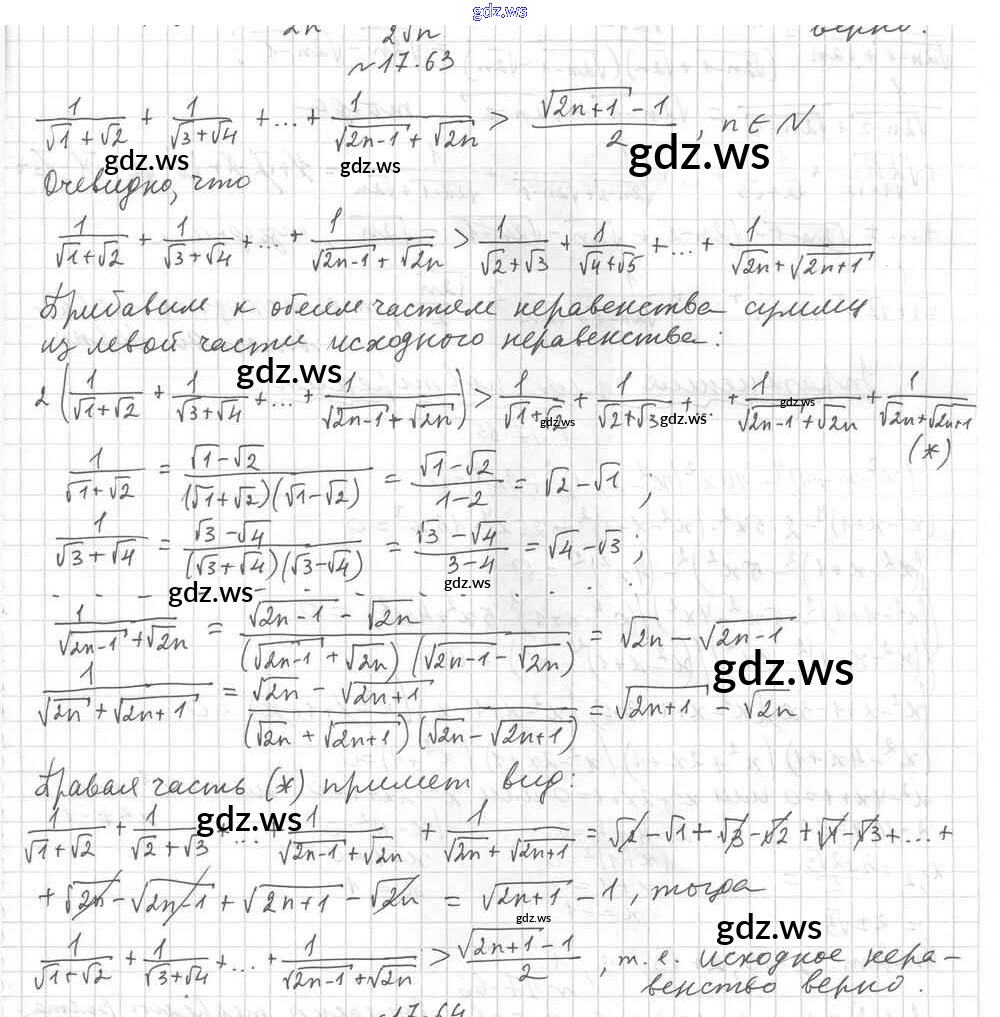 gdz.ws
2n 2√n верно.
№17.63
1/(√1+√2) + 1/(√3+√4) + ... + 1/(√(2n-1)+√(2n)) > (√(2n+1) - 1)/2, n ∈ N
gdz.ws gdz.ws gdz.ws
Очевидно, что
1/(√1+√2) + 1/(√3+√4) + ... + 1/(√(2n-1)+√(2n)) > 1/(√2+√3) + 1/(√4+√5) + ... + 1/(√(2n)+√(2n+1))
Прибавим к обеим частям неравенства сумму
из левой части исходного неравенства:
gdz.ws
2(1/(√1+√2) + 1/(√3+√4) + ... + 1/(√(2n-1)+√(2n))) > 1/(√1+√2) + 1/(√2+√3) + ... + 1/(√(2n-1)+√(2n)) + 1/(√(2n)+√(2n+1))
gdz.ws gdz.ws gdz.ws
(*)
1/(√1+√2) = (√1-√2)/((√1+√2)(√1-√2)) = (√1-√2)/(1-2) = √2-√1;
1/(√3+√4) = (√3-√4)/((√3+√4)(√3-√4)) = (√3-√4)/(3-4) = √4-√3;
gdz.ws gdz.ws
1/(√(2n-1)+√(2n)) = (√(2n-1) - √(2n))/((√(2n-1)+√(2n))(√(2n-1)-√(2n))) = √(2n) - √(2n-1)
gdz.ws
1/(√(2n)+√(2n+1)) = (√(2n) - √(2n+1))/((√(2n)+√(2n+1))(√(2n)-√(2n+1))) = √(2n+1) - √(2n)
Правая часть (*) примет вид:
gdz.ws
1/(√1+√2) + 1/(√2+√3) + ... + 1/(√(2n-1)+√(2n)) + 1/(√(2n)+√(2n+1)) = √2-√1+√3-√2+√4-√3+...+
+√(2n)-√(2n-1)+√(2n+1)-√(2n) = √(2n+1) - 1, тогда
gdz.ws gdz.ws
1/(√1+√2) + 1/(√3+√4) + ... + 1/(√(2n-1)+√(2n)) > (√(2n+1) - 1)/2, т.е. исходное нера-
венство верно.
17.64